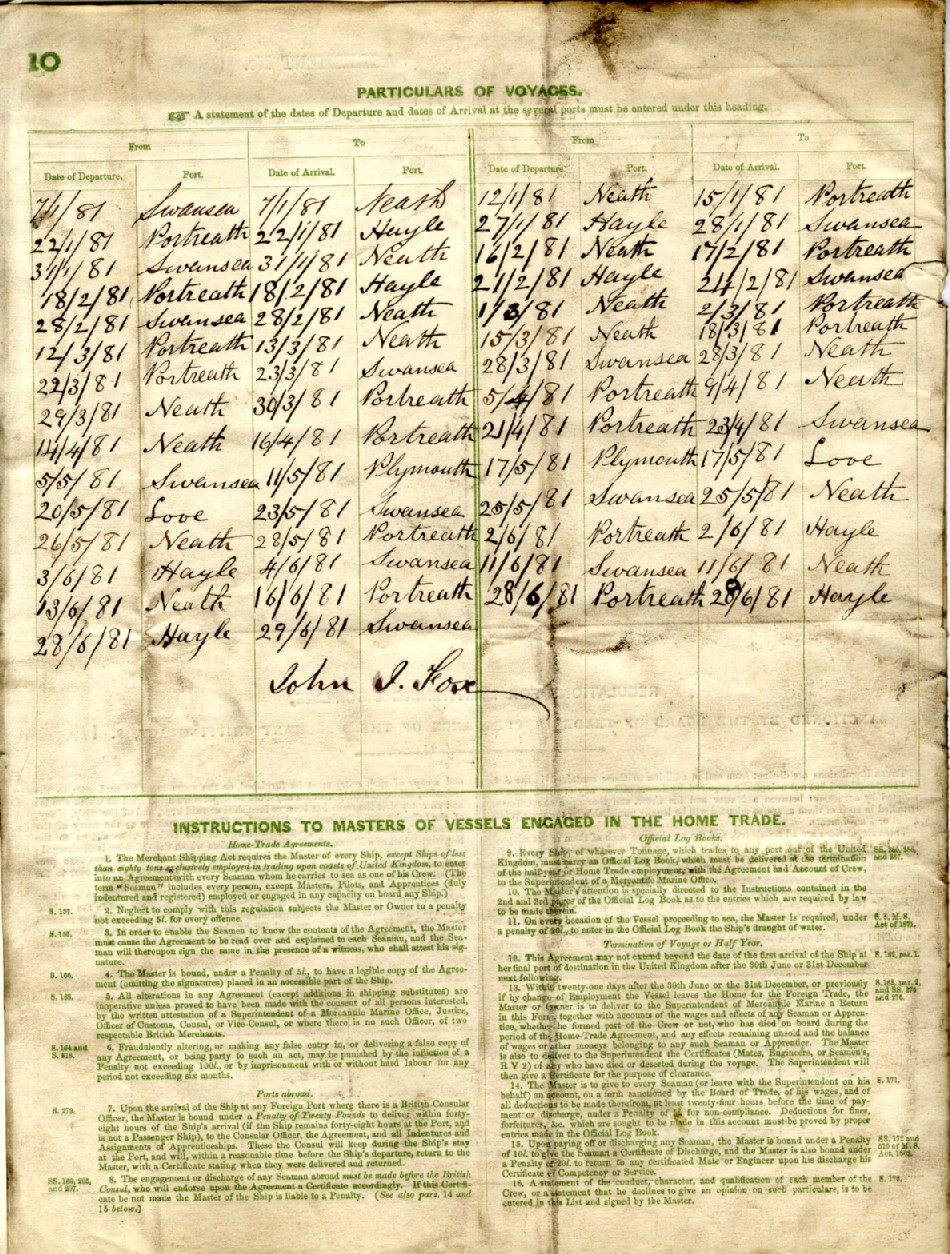 10
PARTICULARS OF VOYAGES.
A statement of the dates of Departure and dates of Arrival at the several ports must be entered under this heading.
From To From To
Date of Departure. Port. Date of Arrival. Port. Date of Departure. Port. Date of Arrival. Port.
7/1/81 Swansea 7/1/81 Neath 12/1/81 Neath 15/1/81 Portreath
22/1/81 Portreath 22/1/81 Hayle 27/1/81 Hayle 28/1/81 Swansea
31/1/81 Swansea 31/1/81 Neath 16/2/81 Neath 17/2/81 Portreath
18/2/81 Portreath 18/2/81 Hayle 21/2/81 Hayle 21/2/81 Swansea
28/2/81 Swansea 28/2/81 Neath 1/3/81 Neath 2/3/81 Portreath
12/3/81 Portreath 13/3/81 Neath 15/3/81 Neath 18/3/81 Portreath
22/3/81 Portreath 23/3/81 Swansea 28/3/81 Swansea 28/3/81 Neath
29/3/81 Neath 30/3/81 Portreath 5/4/81 Portreath 9/4/81 Neath
14/4/81 Neath 16/4/81 Portreath 21/4/81 Portreath 23/4/81 Swansea
5/5/81 Swansea 11/5/81 Plymouth 17/5/81 Plymouth 17/5/81 Looe
20/5/81 Looe 23/5/81 Swansea 25/5/81 Swansea 25/5/81 Neath
26/5/81 Neath 28/5/81 Portreath 2/6/81 Portreath 2/6/81 Hayle
3/6/81 Hayle 4/6/81 Swansea 11/6/81 Swansea 11/6/81 Neath
13/6/81 Neath 16/6/81 Portreath 28/6/81 Portreath 28/6/81 Hayle
28/6/81 Hayle 29/6/81 Swansea
John J. Fox
INSTRUCTIONS TO MASTERS OF VESSELS ENGAGED IN THE HOME TRADE.
Home-Trade Agreements.
1. The Merchant Shipping Act requires the Master of every Ship, except Ships of less
than eighty tons exclusively employed in trading upon coasts of United Kingdom, to enter
into an Agreement with every Seaman whom he carries to sea as one of his Crew. (The
term "Seaman" includes every person, except Masters, Pilots, and Apprentices (duly
indentured and registered) employed or engaged in any capacity on board any Ship.)
S. 157. 2. Neglect to comply with this regulation subjects the Master or Owner to a penalty
not exceeding 5l. for every offence.
S. 150. 3. In order to enable the Seamen to know the contents of the Agreement, the Master
must cause the Agreement to be read over and explained to each Seaman, and the Sea-
man will thereupon sign the same in the presence of a witness, who shall attest his sig-
nature.
S. 166. 4. The Master is bound, under a Penalty of 5l., to have a legible copy of the Agree-
ment (omitting the signatures) placed in an accessible part of the Ship.
S. 163. 5. All alterations in any Agreement (except additions in shipping substitutes) are
inoperative unless proved to have been made with the consent of all persons interested,
by the written attestation of a Superintendent of a Mercantile Marine Office, Justice,
Officer of Customs, Consul, or Vice-Consul, or where there is no such Officer, of two
respectable British Merchants.
6. Fraudulently altering, or making any false entry in, or delivering a false copy of
any Agreement, or being party to such an act, may be punished by the infliction of a
Penalty not exceeding 100l., or by imprisonment with or without hard labour for any
period not exceeding six months.
Ports abroad.
S. 279. 7. Upon the arrival of the Ship at any Foreign Port where there is a British Consular
Officer, the Master is bound under a Penalty of Twenty Pounds to deliver within forty-
eight hours of the Ship's arrival (if the Ship remains forty-eight hours at the Port, and
is not a Passenger Ship), to the Consular Officer, the Agreement, and all Indentures and
Assignments of Apprenticeships. These the Consul will keep during the Ship's stay
at the Port, and will, within a reasonable time before the Ship's departure, return to the
Master, with a Certificate stating when they were delivered and returned.
8. The engagement or discharge of any Seaman abroad must be made before the British
Consul, who will endorse upon the Agreement a Certificate accordingly. If this Certifi-
cate be not made the Master of the Ship is liable to a Penalty. (See also pars. 14 and
15 below.)
Official Log Books.
9. Every Ship, of whatever Tonnage, which trades to any port out of the United
Kingdom, must carry an Official Log Book, which must be delivered at the termination
of the half-year or Home Trade employment, with the Agreement and Account of Crew,
to the Superintendent of a Mercantile Marine Office.
10. The Master's attention is specially directed to the Instructions contained in the
2nd and 3rd pages of the Official Log Book as to the entries which are required by law
to be made therein.
11. On every occasion of the Vessel proceeding to sea, the Master is required, under
a penalty of 20l., to enter in the Official Log Book the Ship's draught of water.
Termination of Voyage or Half Year.
12. This Agreement may not extend beyond the date of the first arrival of the Ship at
her final port of destination in the United Kingdom after the 30th June or 31st December
next following.
13. Within twenty-one days after the 30th June or the 31st December, or previously
if by change of Employment the Vessel leaves the Home for the Foreign Trade, the
Master or Owner is to deliver to the Superintendent of Mercantile Marine a Return
in this Form, together with accounts of the wages and effects of any Seaman or Appren-
tice, whether he formed part of the Crew or not, who has died on board during the
period of the Home-Trade Agreement, and any effects remaining unsold and the balance
of wages or other moneys belonging to any such Seaman or Apprentice. The Master
is also to deliver to the Superintendent the Certificates (Mates, Engineers, or Seamen's,
R V 2) of any who have died or deserted during the voyage. The Superintendent will
then give a Certificate for the purpose of clearance.
14. The Master is to give to every Seaman (or leave with the Superintendent on his S. 171.
behalf) an account, on a form sanctioned by the Board of Trade, of his wages, and of
all deductions to be made therefrom, at least twenty-four hours before the time of pay-
ment or discharge, under a Penalty of 5l. for non-compliance. Deductions for fines,
forfeitures, &c. which are sought to be made in this account must be proved by proper
entries made in the Official Log Book.
15. Upon paying off or discharging any Seaman, the Master is bound under a Penalty
of 10l. to give the Seaman a Certificate of Discharge, and the Master is also bound under
a Penalty of 20l. to return to any certificated Mate or Engineer upon his discharge his
Certificate of Competency or Service.
16. A statement of the conduct, character, and qualification of each member of the S. 176.
Crew, or a statement that he declines to give an opinion on such particulars, is to be
entered in this List and signed by the Master.